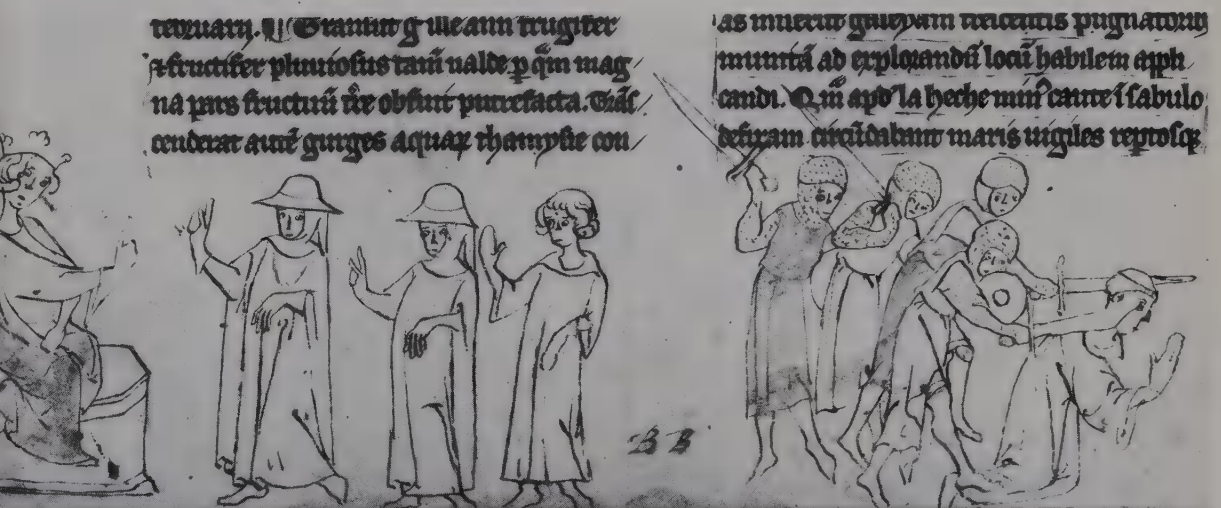 februarii. ¶ Transiit g̃ ille ann frugifer
⁊ fructifer pluuiosus tam̃ ualde p q̃m mag
na pars fructuũ t̃re obfuit putrefacta. Trãs
cenderat autẽ gurges aquaꝝ thamysie con
as miserũt galeyam trecentis pugnatoriƷ
munitã ad explorandũ locũ habilem appli
candi. Q̃m apđ la heche min⁹ caute ĩ sabulo
defixam circũdabant maris uigiles reptosqꝫ
B B